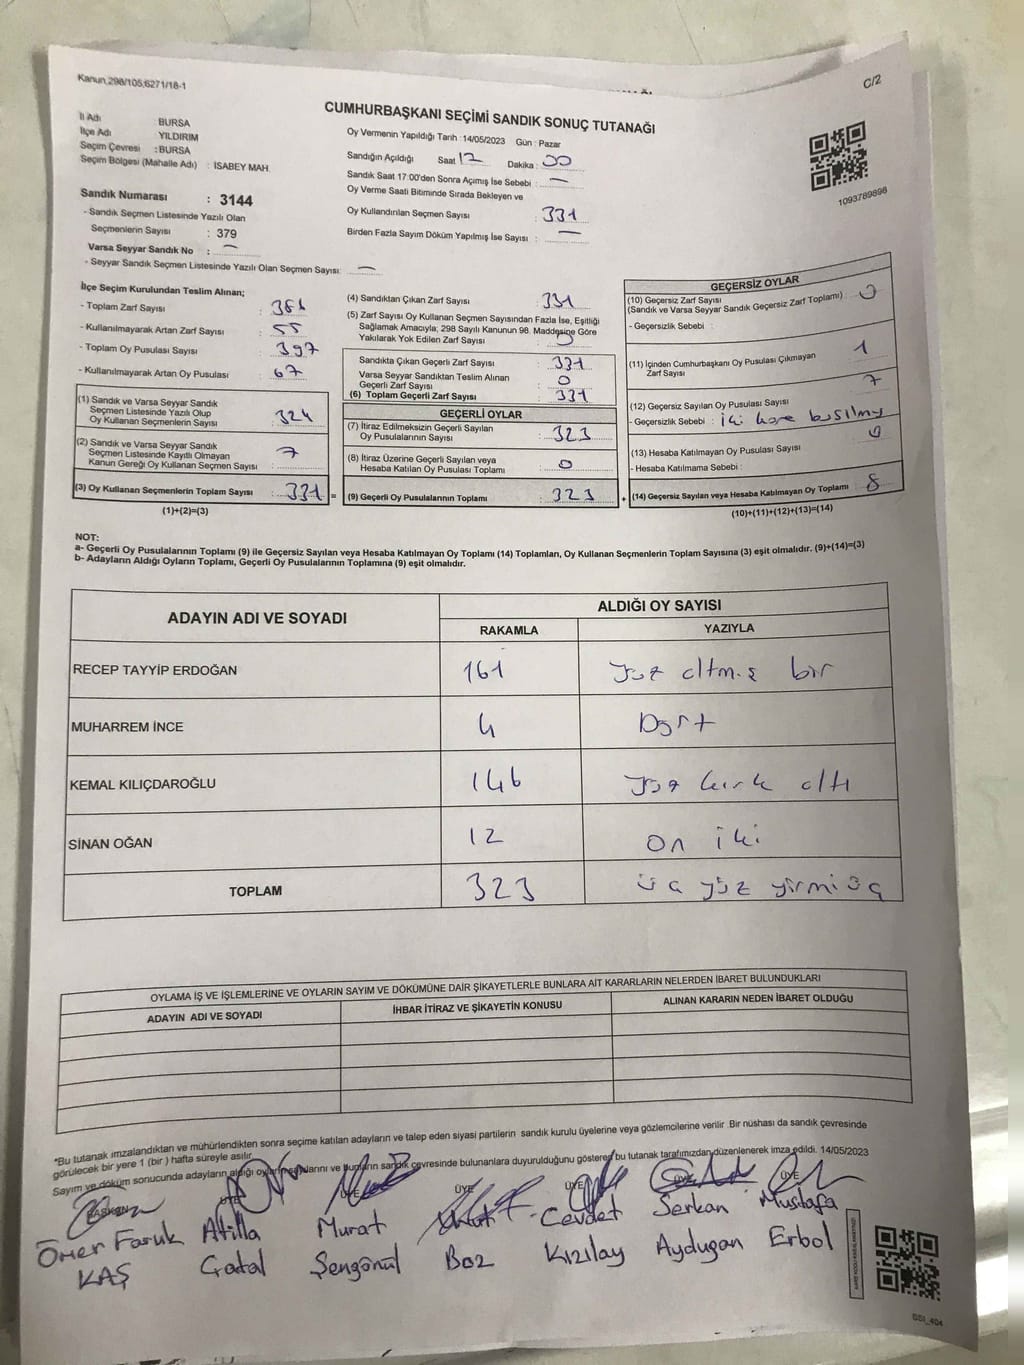 Kanun,298/105;6271/18-1
C/2
CUMHURBAŞKANI SEÇİMİ SANDIK SONUÇ TUTANAĞI
İl Adı BURSA
İlçe Adı YILDIRIM
Seçim Çevresi :BURSA
Seçim Bölgesi (Mahalle Adı) : İSABEY MAH.
Sandık Numarası : 3144
- Sandık Seçmen Listesinde Yazılı Olan
Seçmenlerin Sayısı : 379
Varsa Seyyar Sandık No : —
- Seyyar Sandık Seçmen Listesinde Yazılı Olan Seçmen Sayısı: —
Oy Vermenin Yapıldığı Tarih :14/05/2023 Gün : Pazar
Sandığın Açıldığı Saat 17 Dakika : 00
Sandık Saat 17:00'den Sonra Açımış İse Sebebi : —
Oy Verme Saati Bitiminde Sırada Bekleyen ve
Oy Kullandırılan Seçmen Sayısı : 331
Birden Fazla Sayım Döküm Yapılmış İse Sayısı : —
1093789898
İlçe Seçim Kurulundan Teslim Alınan;
- Toplam Zarf Sayısı : 386
- Kullanılmayarak Artan Zarf Sayısı : 55
- Toplam Oy Pusulası Sayısı : 397
- Kullanılmayarak Artan Oy Pusulası : 67
(1) Sandık ve Varsa Seyyar Sandık
Seçmen Listesinde Yazılı Olup
Oy Kullanan Seçmenlerin Sayısı : 324
(2) Sandık ve Varsa Seyyar Sandık
Seçmen Listesinde Kayıtlı Olmayan
Kanun Gereği Oy Kullanan Seçmen Sayısı : 7
(3) Oy Kullanan Seçmenlerin Toplam Sayısı : 331 =
(1)+(2)=(3)
(4) Sandıktan Çıkan Zarf Sayısı : 331
(5) Zarf Sayısı Oy Kullanan Seçmen Sayısından Fazla İse, Eşitliği
Sağlamak Amacıyla; 298 Sayılı Kanunun 98. Maddesine Göre
Yakılarak Yok Edilen Zarf Sayısı :
Sandıkta Çıkan Geçerli Zarf Sayısı : 331
Varsa Seyyar Sandıktan Teslim Alınan
Geçerli Zarf Sayısı : 0
(6) Toplam Geçerli Zarf Sayısı : 331
GEÇERLİ OYLAR
(7) İtiraz Edilmeksizin Geçerli Sayılan
Oy Pusulalarının Sayısı : 323
(8) İtiraz Üzerine Geçerli Sayılan veya
Hesaba Katılan Oy Pusulası Toplamı : 0
(9) Geçerli Oy Pusulalarının Toplamı : 323 +
GEÇERSİZ OYLAR
(10) Geçersiz Zarf Sayısı
(Sandık ve Varsa Seyyar Sandık Geçersiz Zarf Toplamı) : 0
- Geçersizlik Sebebi :
(11) İçinden Cumhurbaşkanı Oy Pusulası Çıkmayan
Zarf Sayısı 1
(12) Geçersiz Sayılan Oy Pusulası Sayısı 7
- Geçersizlik Sebebi : iki kere basılmış
(13) Hesaba Katılmayan Oy Pusulası Sayısı 0
- Hesaba Katılmama Sebebi :
(14) Geçersiz Sayılan veya Hesaba Katılmayan Oy Toplamı : 8
(10)+(11)+(12)+(13)=(14)
NOT:
a- Geçerli Oy Pusulalarının Toplamı (9) ile Geçersiz Sayılan veya Hesaba Katılmayan Oy Toplamı (14) Toplamları, Oy Kullanan Seçmenlerin Toplam Sayısına (3) eşit olmalıdır. (9)+(14)=(3)
b- Adayların Aldığı Oyların Toplamı, Geçerli Oy Pusulalarının Toplamına (9) eşit olmalıdır.
ADAYIN ADI VE SOYADI ALDIĞI OY SAYISI
RAKAMLA YAZIYLA
RECEP TAYYİP ERDOĞAN 161 Yüz altmış bir
MUHARREM İNCE 4 Dört
KEMAL KILIÇDAROĞLU 146 Yüz kırk altı
SİNAN OĞAN 12 On iki
TOPLAM 323 üç yüz yirmi üç
OYLAMA İŞ VE İŞLEMLERİNE VE OYLARIN SAYIM VE DÖKÜMÜNE DAİR ŞİKAYETLERLE BUNLARA AİT KARARLARIN NELERDEN İBARET BULUNDUKLARI
ADAYIN ADI VE SOYADI İHBAR İTİRAZ VE ŞİKAYETİN KONUSU ALINAN KARARIN NEDEN İBARET OLDUĞU
*Bu tutanak imzalandıktan ve mühürlendikten sonra seçime katılan adayların ve talep eden siyasi partilerin sandık kurulu üyelerine veya gözlemcilerine verilir. Bir nüshası da sandık çevresinde
görülecek bir yere 1 (bir) hafta süreyle asılır.
Sayım ve döküm sonucunda adayların aldığı oyların sayılarını ve bunların sandık çevresinde bulunanlara duyurulduğunu gösterer bu tutanak tarafımızdan düzenlenerek imza edildi. 14/05/2023
BAŞKAN ÜYE ÜYE ÜYE ÜYE ÜYE ÜYE
Ömer Faruk Atilla Murat Cevdet Serkan Mustafa
KAŞ Şengönül Boz Kızılay Aydugan Erbol
GSI_404